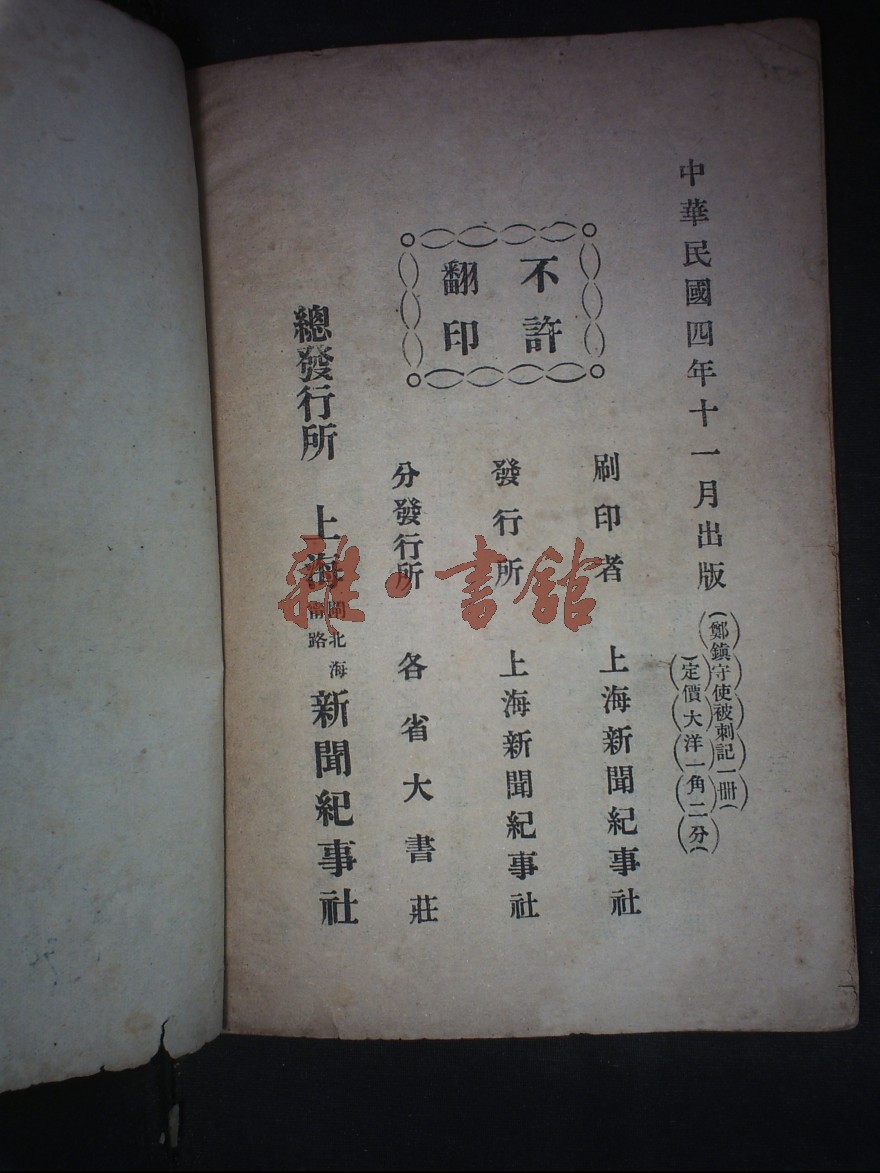 中華民國四年十一月出版
鄭鎮守使被刺記一冊
定價大洋一角二分
不許
翻印
刷印者 上海新聞紀事社
發行所 上海新聞紀事社
分發行所 各省大書莊
總發行所 上海 北海 路 新聞紀事社
雜·書館